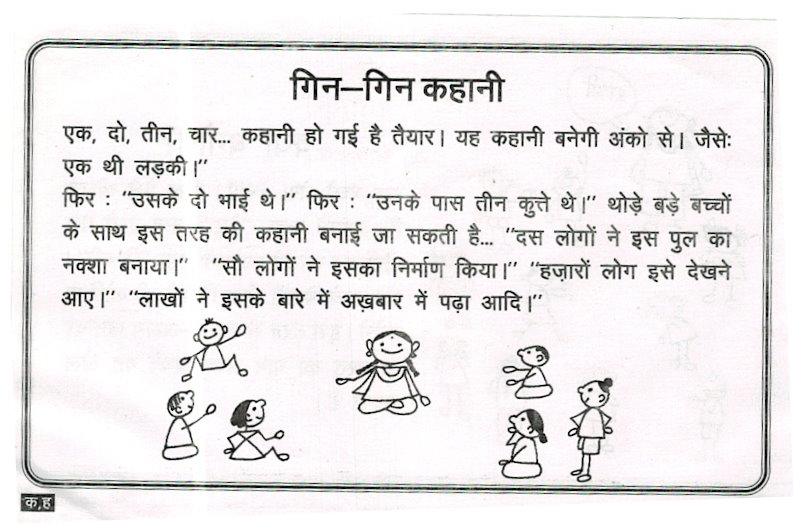 गिन–गिन कहानी
एक, दो, तीन, चार... कहानी हो गई है तैयार। यह कहानी बनेगी अंको से। जैसेः
एक थी लड़की।”
फिर : “उसके दो भाई थे।” फिर : “उनके पास तीन कुत्ते थे।” थोड़े बड़े बच्चों
के साथ इस तरह की कहानी बनाई जा सकती है... “दस लोगों ने इस पुल का
नक्शा बनाया।” “सौ लोगों ने इसका निर्माण किया।” “हज़ारों लोग इसे देखने
आए।” “लाखों ने इसके बारे में अख़बार में पढ़ा आदि।”
क,ह